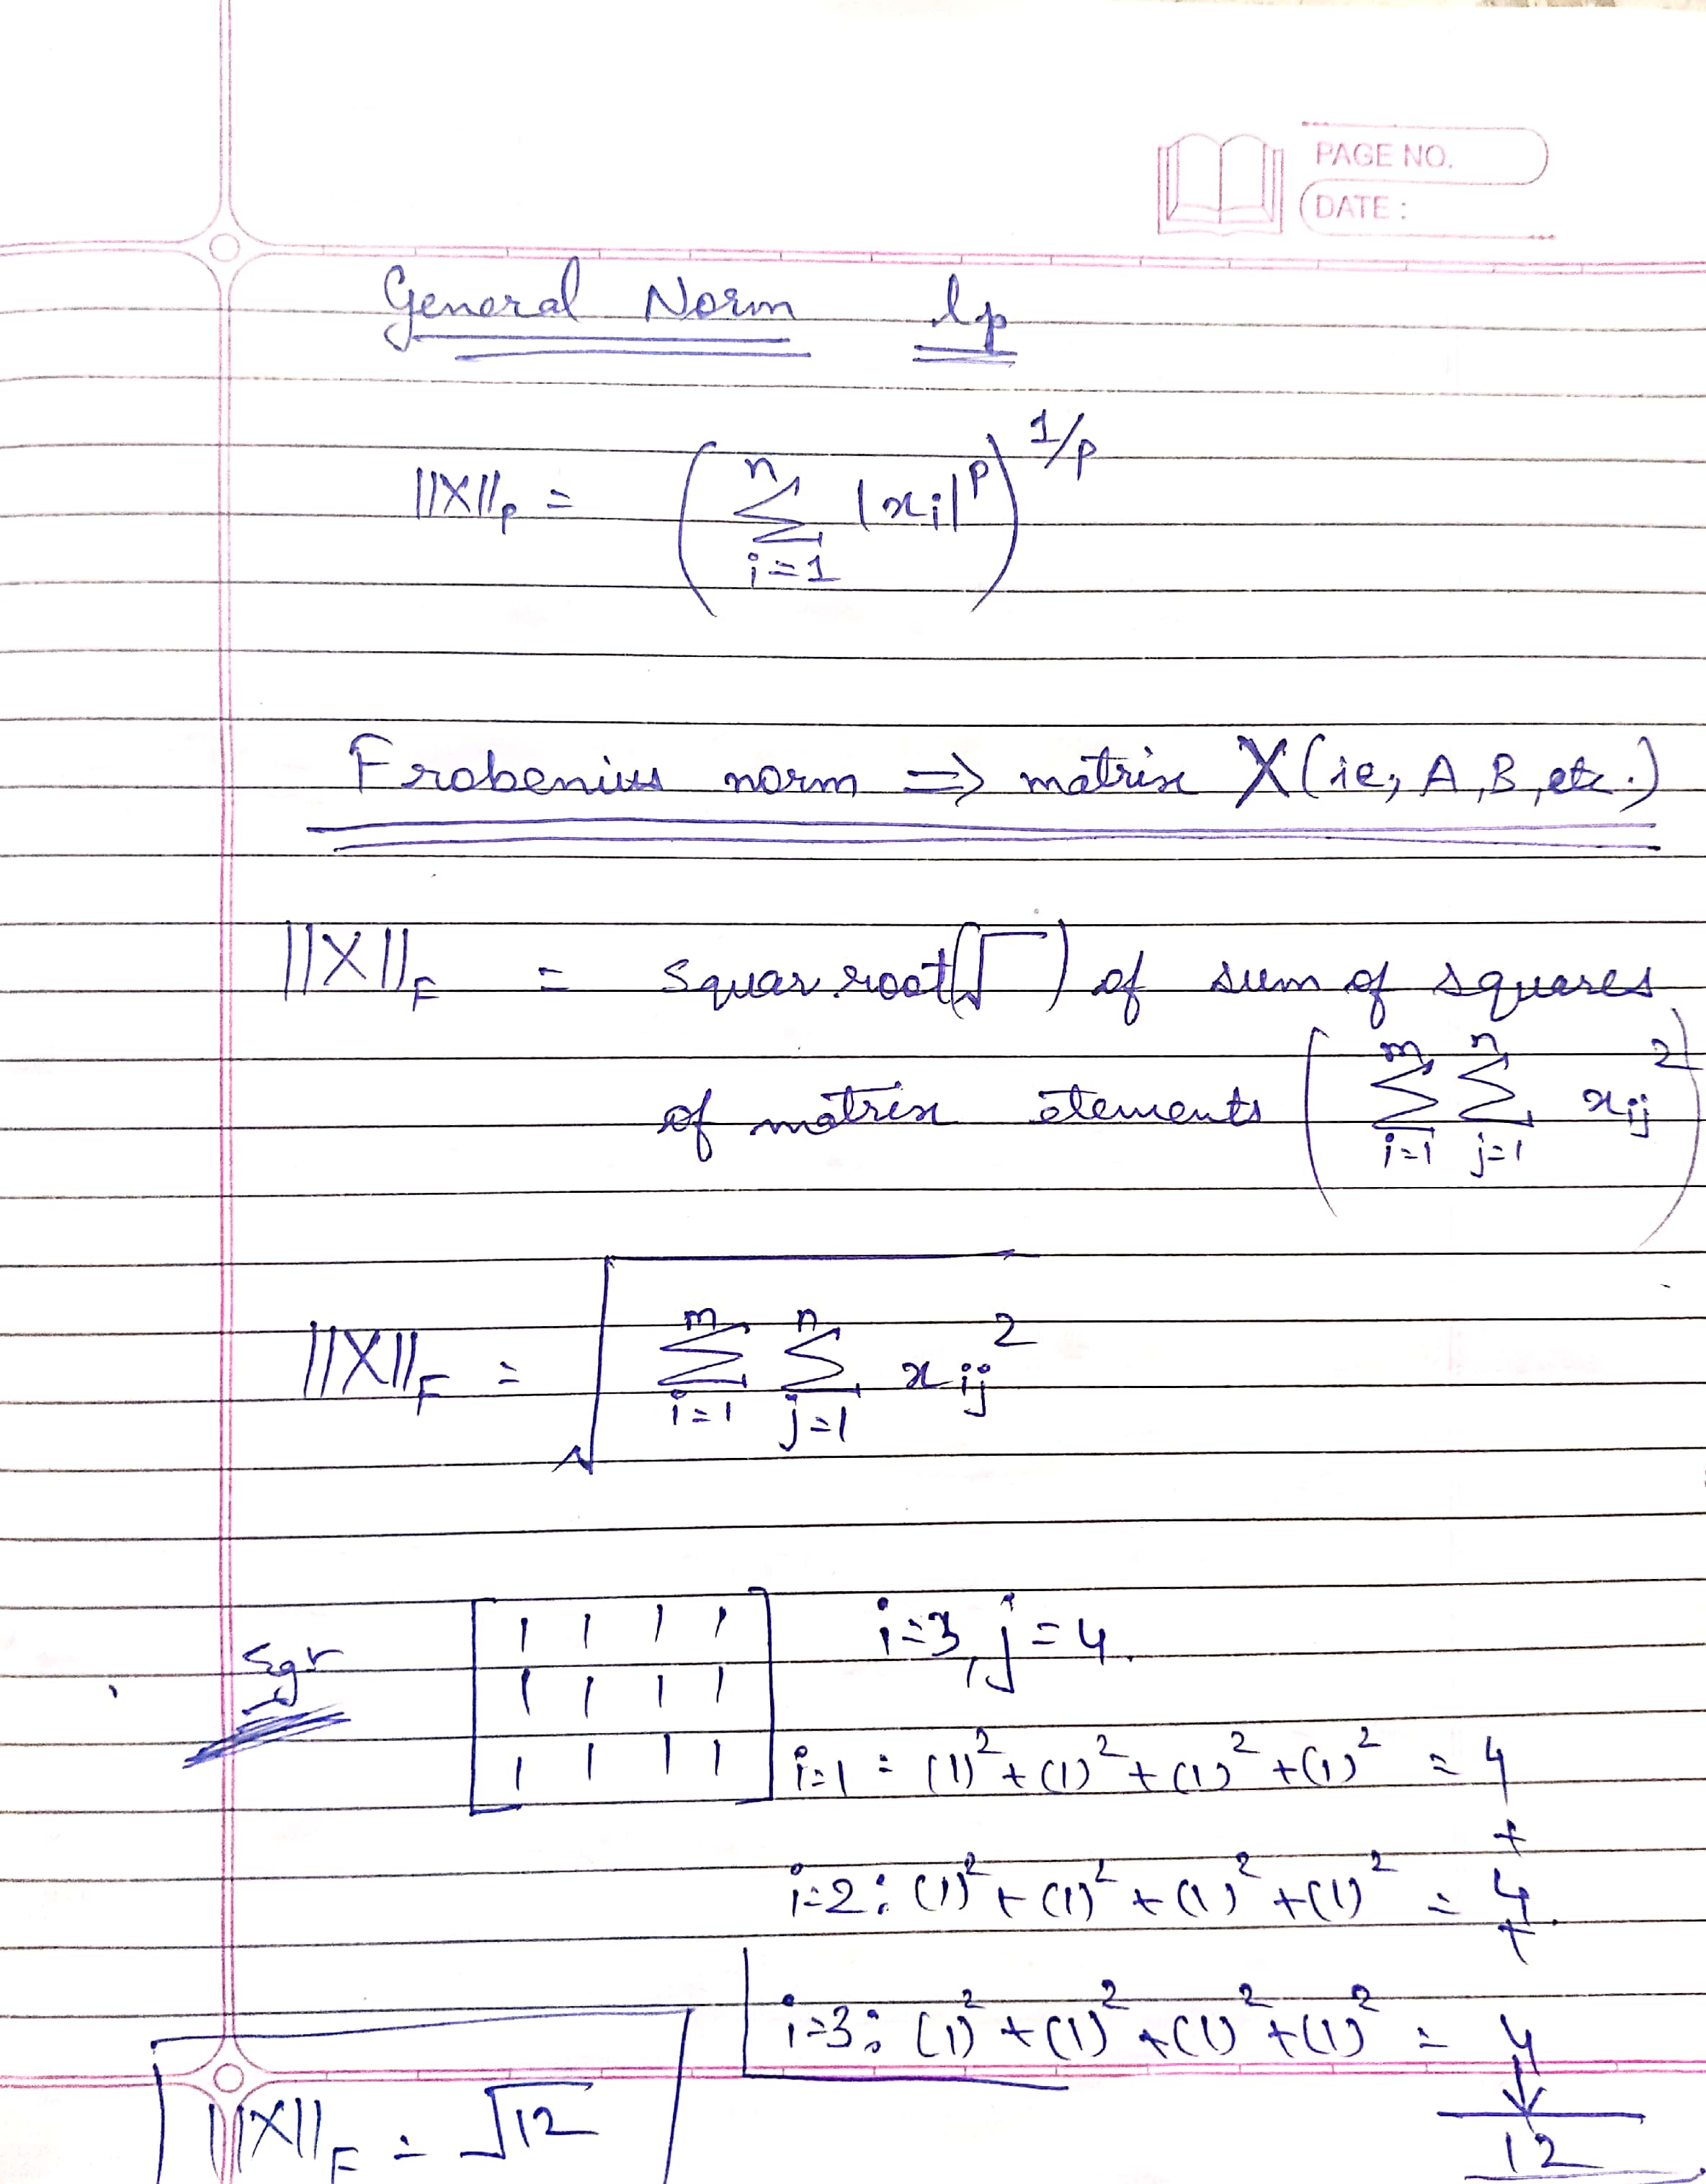 PAGE NO.
DATE :
General Norm lp
||X||p = ( n Σ i=1 |xi|^p )^1/p
Frobenius norm => matrix X (ie, A, B, etc.)
||X||F = squar root(√ ) of sum of squares
of matrix elements ( m Σ i=1 n Σ j=1 xij^2 )
||X||F = √ m Σ i=1 n Σ j=1 xij^2
1 1 1 1 i=3, j=4
1 1 1 1
1 1 1 1 i=1 : (1)^2 + (1)^2 + (1)^2 + (1)^2 = 4
+
i=2 : (1)^2 + (1)^2 + (1)^2 + (1)^2 = 4
+
i=3 : (1)^2 + (1)^2 + (1)^2 + (1)^2 = 4
||X||F = √12
12